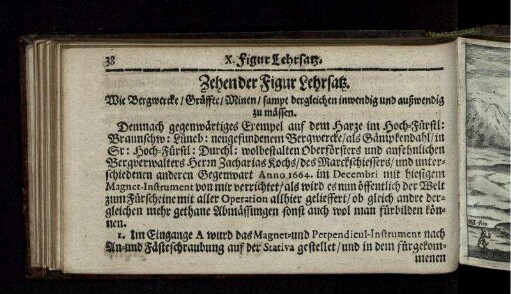 38 X. Figur Lehrsatz.
Zehender Figur Lehrsatz.
Wie Bergwercke / Grüffte / Minen / sampt dergleichen inwendig und außwendig
zu mässen.
Demnach gegenwärtiges Exempel auf dem Harze im Hoch-Fürstl:
Braunschw: Lüneb: neugefundenem Bergwercke / als Gämpkendahl / in
Sr: Hoch-Fürstl: Durchl: wolbestalten Oberförsters und ansehnlichen
Bergverwalters Herrn Zacharias Kochs / des Marckschiessers / und unter-
schiedenen anderen Gegenwart Anno 1664. im Decembri mit hiesigem
Magnet-Instrument von mir verrichtet / als wird es nun öffentlich der Welt
zum Fürscheine mit aller Operation allhier gelieffert / ob gleich andre der-
gleichen mehr gethane Abmässungen sonst auch wol man fürbilden kön-
nen.
1. Im Eingange A wird das Magnet- und Perpendicul-Instrument nach
An- und Fästeschraubung auf der Stativa gestellet / und in dem fürgekom-
menen